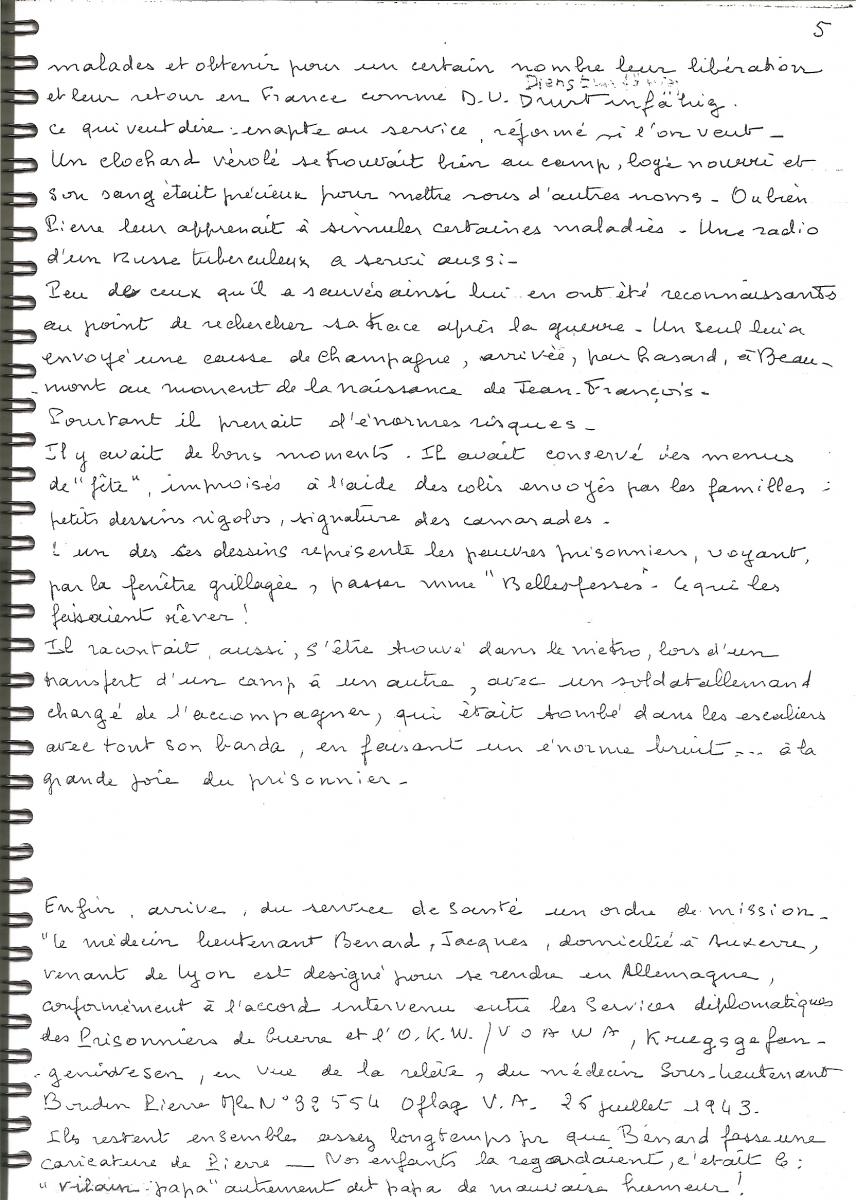 5
malades et obtenir pour un certain nombre leur libération
Dienst
et leur retour en France comme D.U. Druitinfähig.
ce qui veut dire : inapte au service, réformé si l'on veut -
Un clochard vérolé se trouvait bien au camp, logé nourri et
son sang était précieux pour mettre sous d'autres noms - Ou bien
Pierre leur apprenait à simuler certaines maladies - Une radio
d'un Russe tuberculeux a servi aussi -
Peu de ceux qu'il a sauvés ainsi lui en ont été reconnaissants
au point de rechercher sa trace après la guerre - Un seul lui a
envoyé une caisse de champagne, arrivée, par hasard, à Beau-
mont au moment de la naissance de Jean-François -
Pourtant il prenait d'énormes risques -
Il y avait de bons moments. Il avait conservé des menus
de "fête", improisés à l'aide des colis envoyés par les familles :
petits dessins rigolos, signature des camarades -
L'un des ses dessins représente les pauvres prisonniers, voyant,
par la fenêtre grillagée, passer mme "Bellesfesses" - Ce qui les
faisaient rêver !
Il racontait, aussi, s'être trouvé dans le métro, lors d'un
transfert d'un camp à un autre, avec un soldat allemand
chargé de l'accompagner, qui était tombé dans les escaliers
avec tout son barda, en faisant un énorme bruit ... à la
grande joie du prisonnier -
Enfin, arrive, du service de santé un ordre de mission -
"Le médecin lieutenant Benard, Jacques, domicilié à Auxerre,
venant de Lyon est désigné pour se rendre en Allemagne,
conformément à l'accord intervenu entre les Services diplomatiques
des Prisonniers de Guerre et l'O.K.W. / V O A W A, Kruegsgefan-
genindesen, en vue de la relève, du médecin Sous-lieutenant
Boudin Pierre Mle N° 32554 Oflag V.A. 26 juillet 1943.
Ils restent ensembles assez longtemps pr que Bénard fasse une
caricature de Pierre - Nos enfants la regardaient, c'était le :
"vilain papa" autrement dit papa de mauvaise humeur !